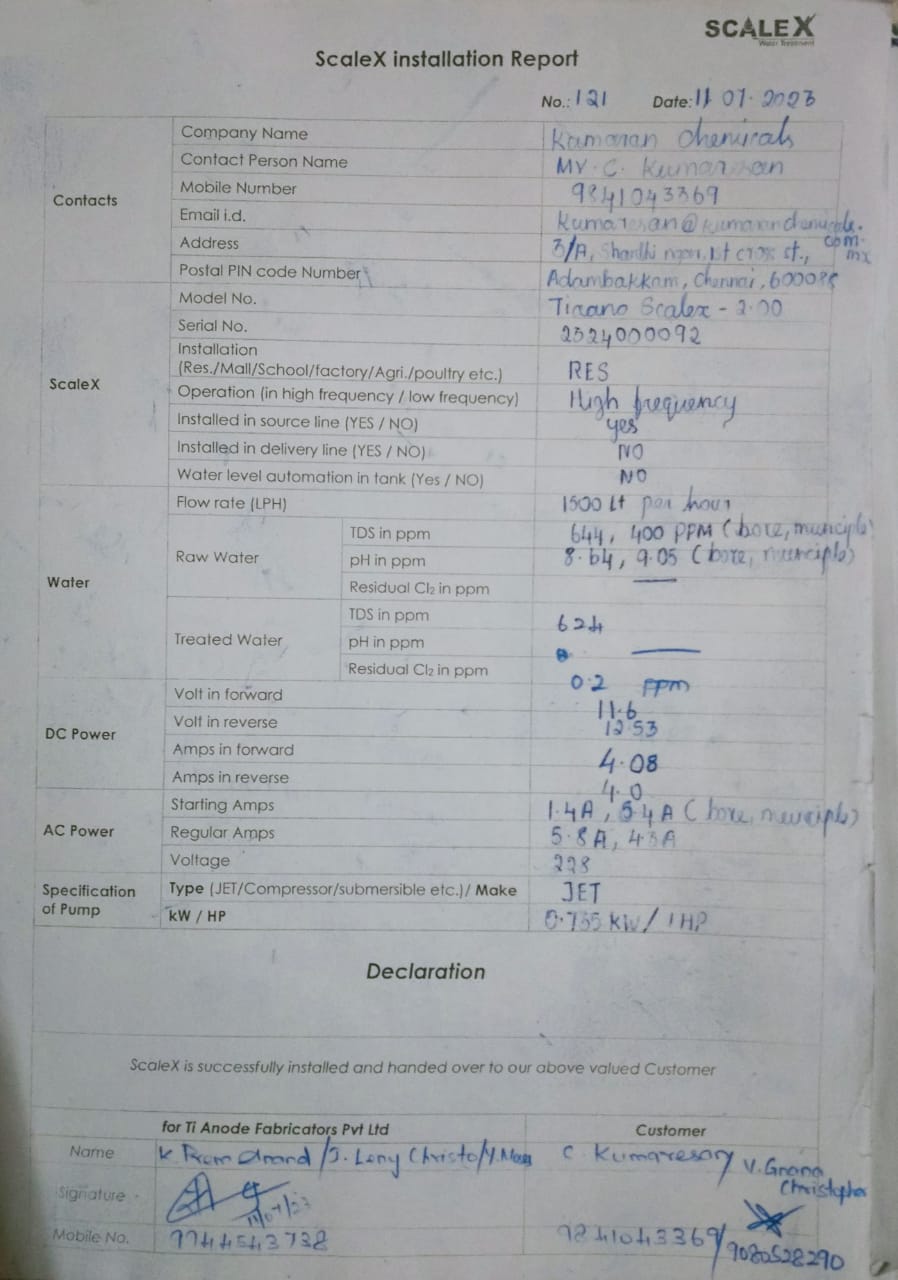 SCALEX
Water Treatment
ScaleX installation Report
No.: 121 Date: 11 07. 2023
Contacts
Company Name Kumaran Chemicals
Contact Person Name Mr. C. Kumaresan
Mobile Number 9841043369
Email i.d. Kumaresan@kumaranchemicals.
com.
Address 3/A, Shanthi nagar, 1st cross st.,
Postal PIN code Number Adambakkam, Chennai, 600088
ScaleX
Model No. Tirano Scalex - 2.00
Serial No. 2324000092
Installation
(Res./Mall/School/factory/Agri./poultry etc.) RES
Operation (in high frequency / low frequency) High frequency
Installed in source line (YES / NO) yes
Installed in delivery line (YES / NO) NO
Water level automation in tank (Yes / NO) NO
Water
Flow rate (LPH) 1500 Lt per hour
Raw Water
TDS in ppm 644, 400 PPM (bore, municiple)
pH in ppm 8.64, 9.05 (bore, municiple)
Residual Cl2 in ppm —
Treated Water
TDS in ppm 624
pH in ppm —
Residual Cl2 in ppm 0.2 ppm
DC Power
Volt in forward 11.6
Volt in reverse 12.53
Amps in forward 4.08
Amps in reverse 4.0
AC Power
Starting Amps 1.4A, 5.4A (bore, municiple)
Regular Amps 5.8A, 4.3A
Voltage 228
Specification
of Pump
Type (JET/Compressor/submersible etc.)/ Make JET
kW / HP 0.755 KW/ 1HP
Declaration
ScaleX is successfully installed and handed over to our above valued Customer
for Ti Anode Fabricators Pvt Ltd Customer
Name K Prem Anand /J. Leny Christo/ C Kumaresan V. Gnana
Christopher
Signature
11/07/23
Mobile No. 9944543738 9841043369/
9080528290